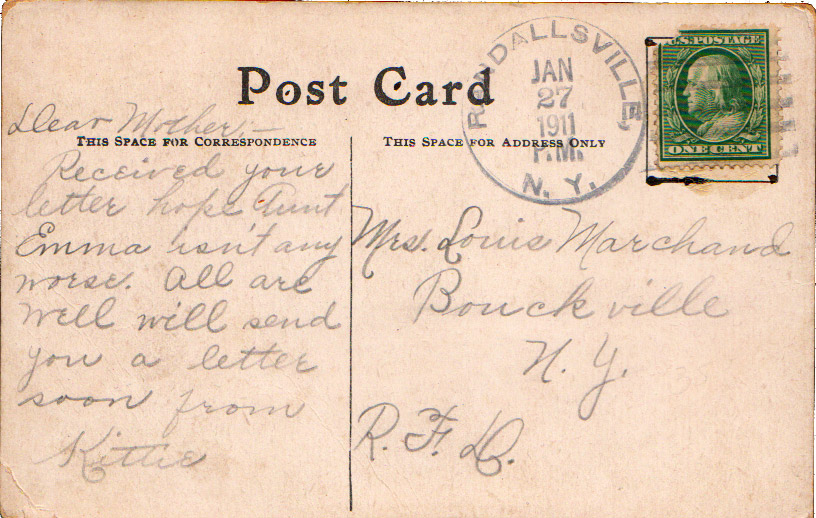 Post Card
RANDALLSVILLE,
JAN
27
1911
P.M.
N. Y.
U.S. POSTAGE
ONE CENT
THIS SPACE FOR CORRESPONDENCE
THIS SPACE FOR ADDRESS ONLY
Dear Mother:—
Received your
letter hope Aunt
Emma isn't any
worse. All are
well will send
you a letter
soon from
Kittie
Mrs. Louis Marchand
Bouckville
N. Y.
R. F. D.